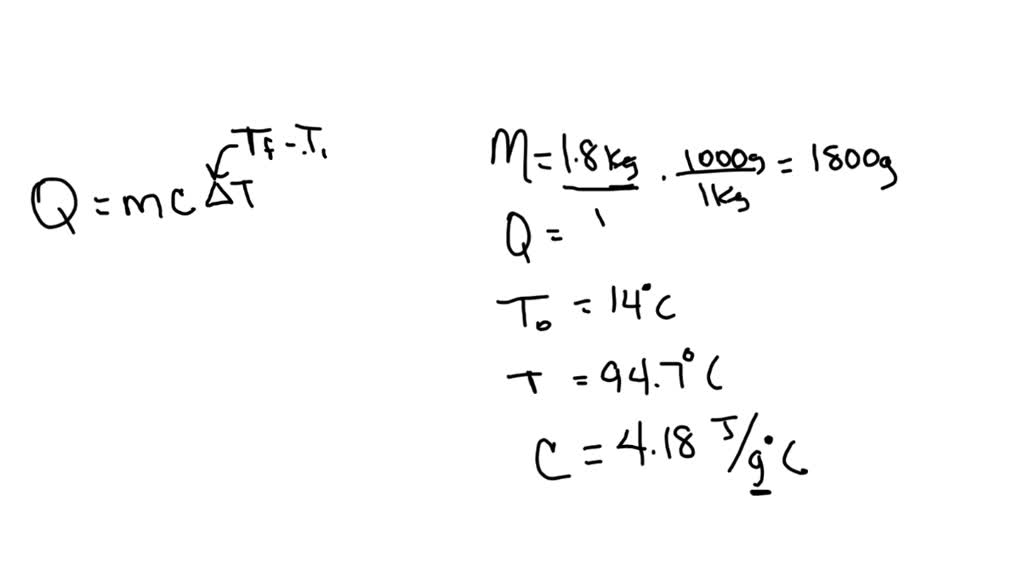 Tf - T₁
Q = mcΔT
M = 1.8kg/1 · 1000g/1kg = 1800g
Q =
T₀ = 14°C
T = 94.7°C
C = 4.18 J/g°C